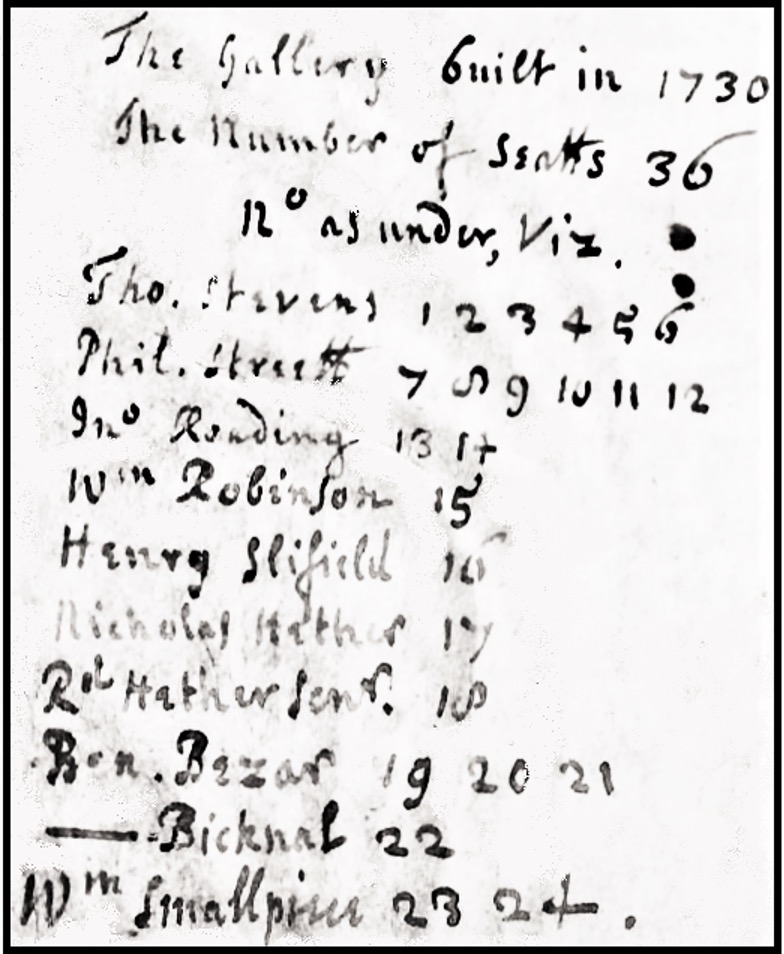 The Gallery built in 1730
The Number of Seatts 36
No as under, Viz.
Tho. Stevens 1 2 3 4 5 6
Phil. Streett 7 8 9 10 11 12
Jno Reading 13 14
Wm Robinson 15
Henry Slifield 16
Nicholas Hether 17
Rd Hether Senr. 18
Ben. Bezar 19 20 21
— Bicknal 22
Wm Smallpiece 23 24.